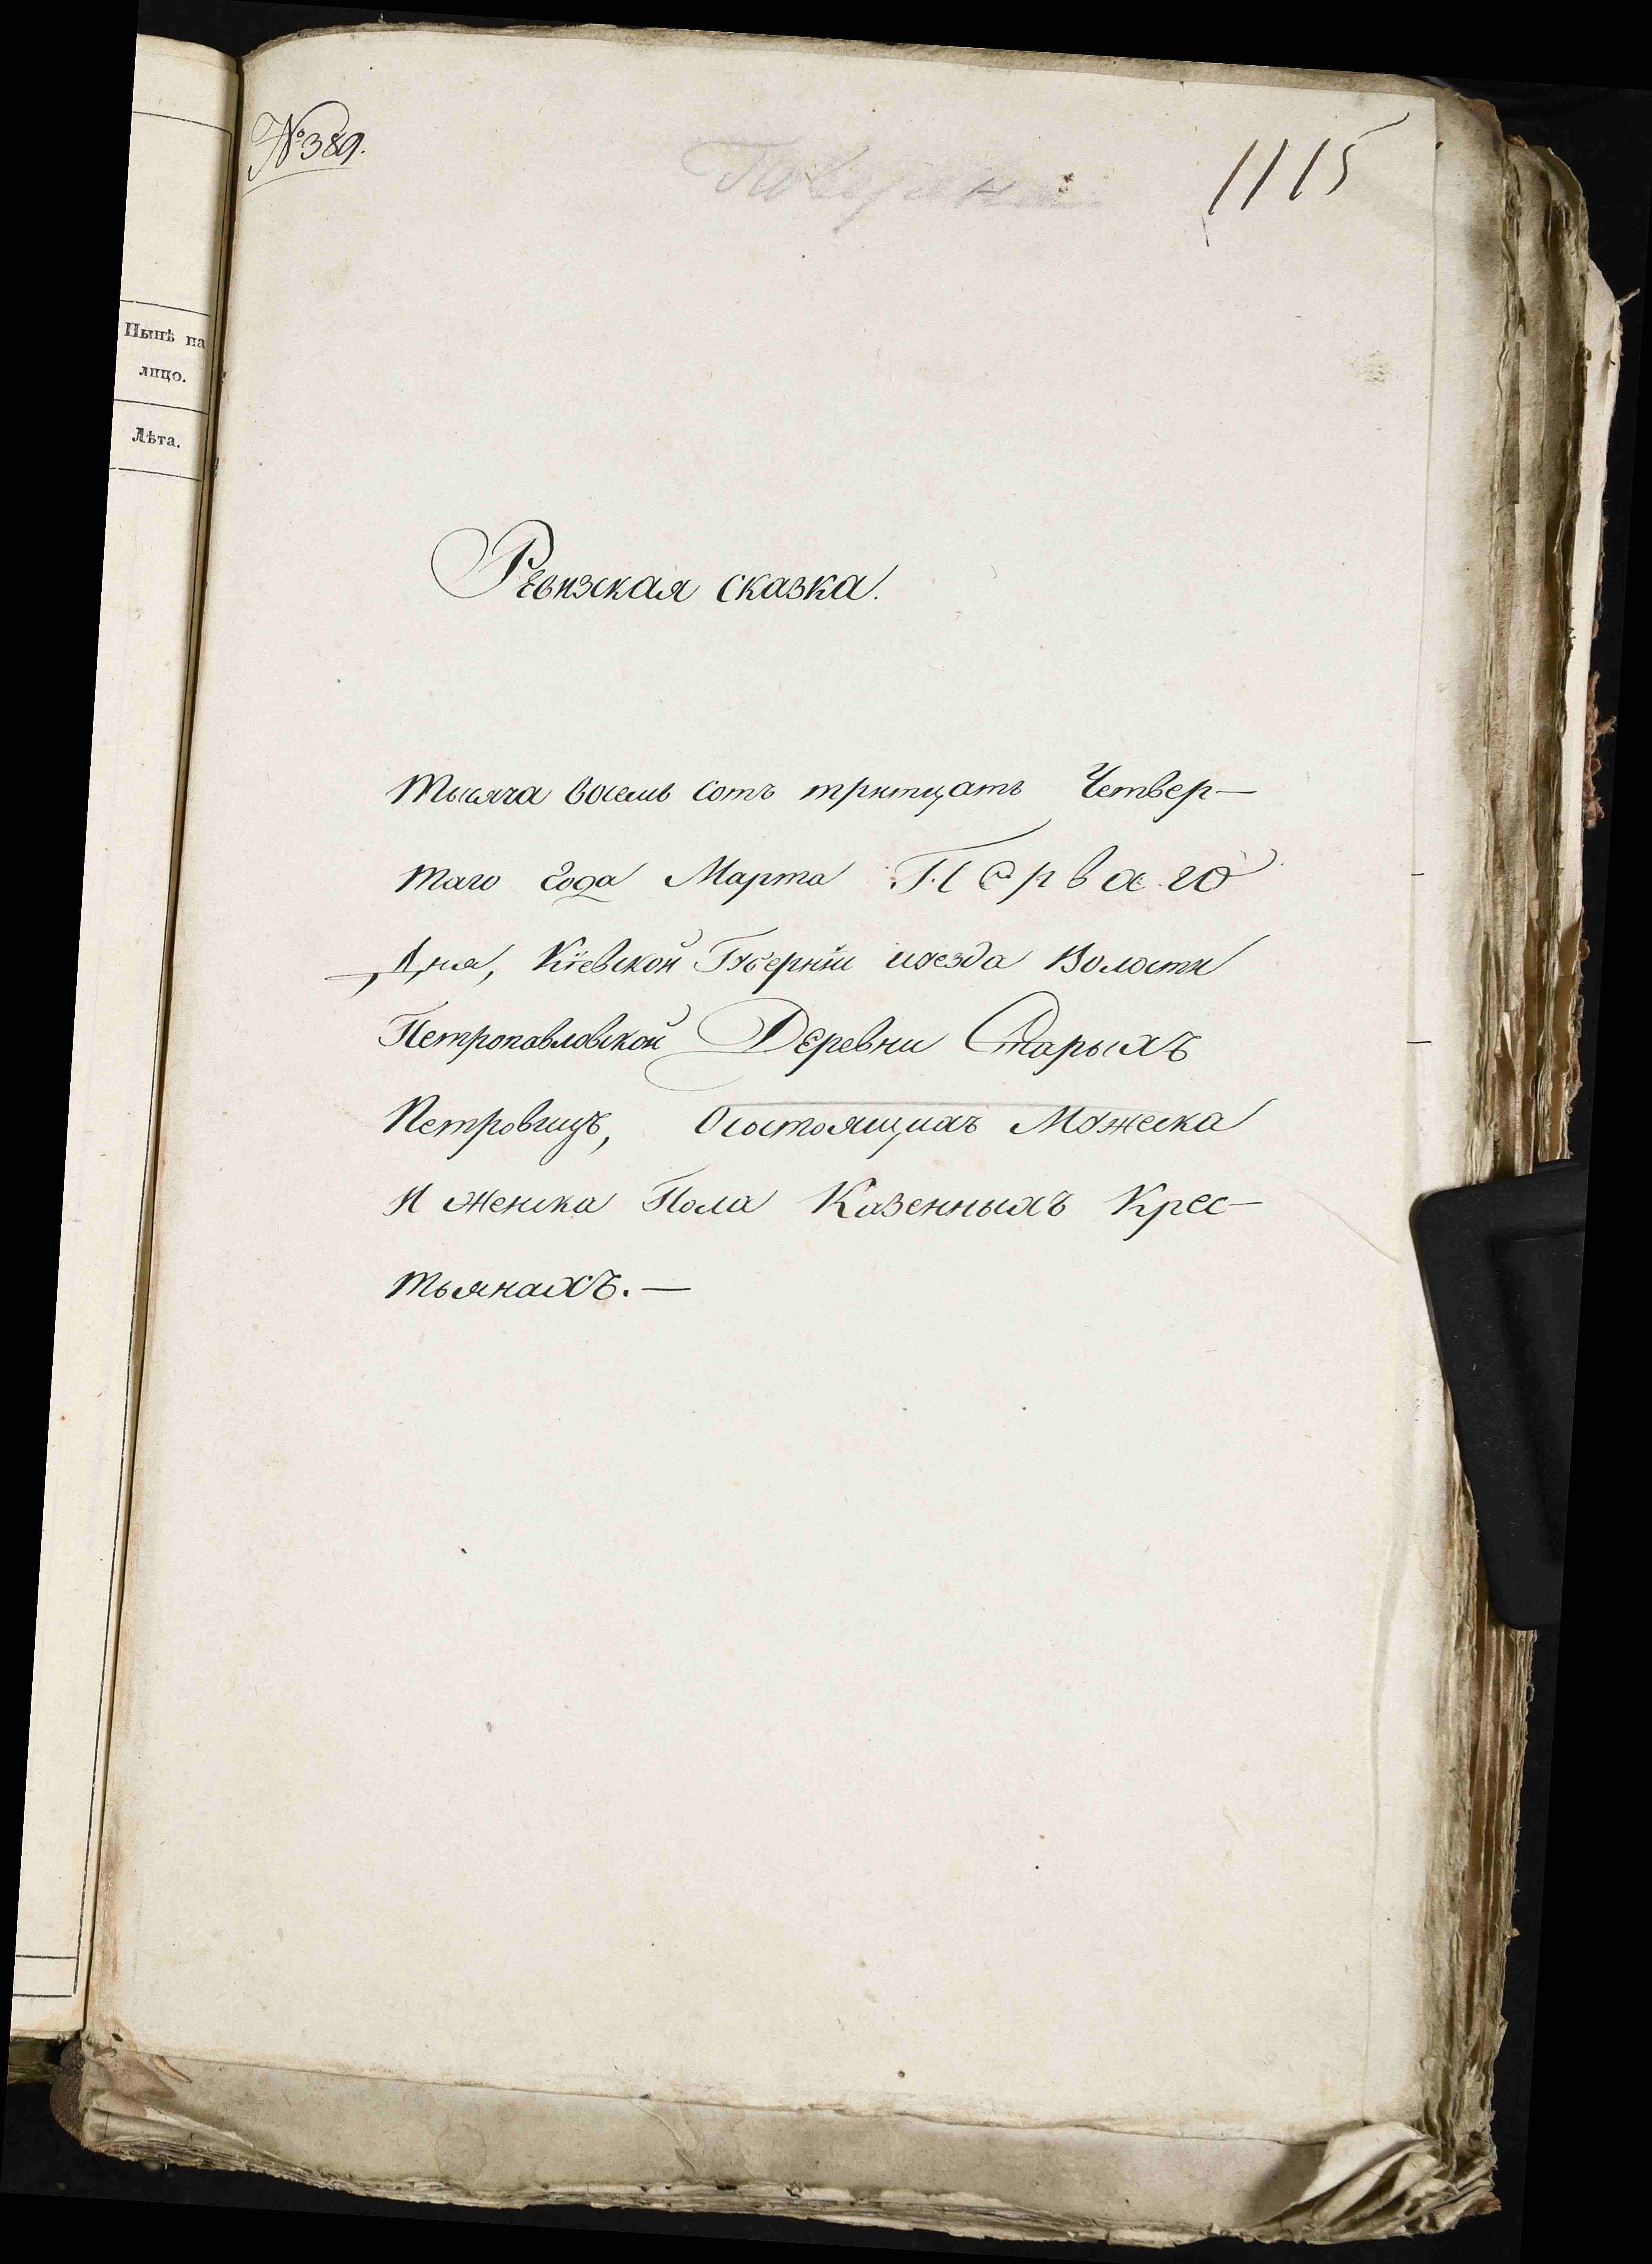 Нынѣ на
лицо.
Лѣта.
№389.
1115
Ревизская сказка.
тысяча восемь сотъ тритцать Четвер-
таго года Марта Перваго
Дня, Кіевской Губерніи и уезда Волости
Петропавловской Деревни Старыхъ
Петровцъ, Осостоящихъ Мужеска
И женска Пола Казенныхъ Крес-
тьянахъ.—